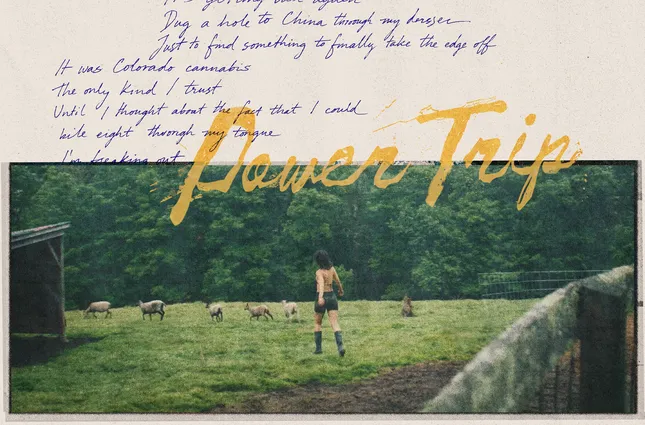 Dug a hole to China through my dresser
Just to find something to finally take the edge off
It was Colorado cannabis
The only kind I trust
Until I thought about the fact that I could
bite right through my tongue
I'm freaking out
Power Trip